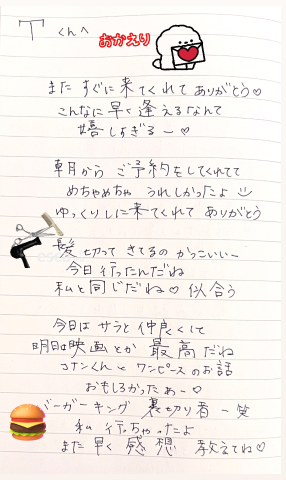 Tくんへ
おかえり
またすぐに来てくれてありがとう♡
こんなに早く逢えるなんて
嬉しすぎる〜♡
朝からご予約をしてくれてて
めちゃめちゃうれしかったよ
ゆっくりしに来てくれてありがとう
髪切ってきてるのかっこいいー
今日行ったんだね
私と同じだね♡似合う
今日はサラと仲良くして
明日は映画とか最高だね
コナンくんとワンピースのお話
おもしろかったぁー♡
バーガーキング裏切り者ー笑
私行っちゃったよ
また早く感想教えてね♡